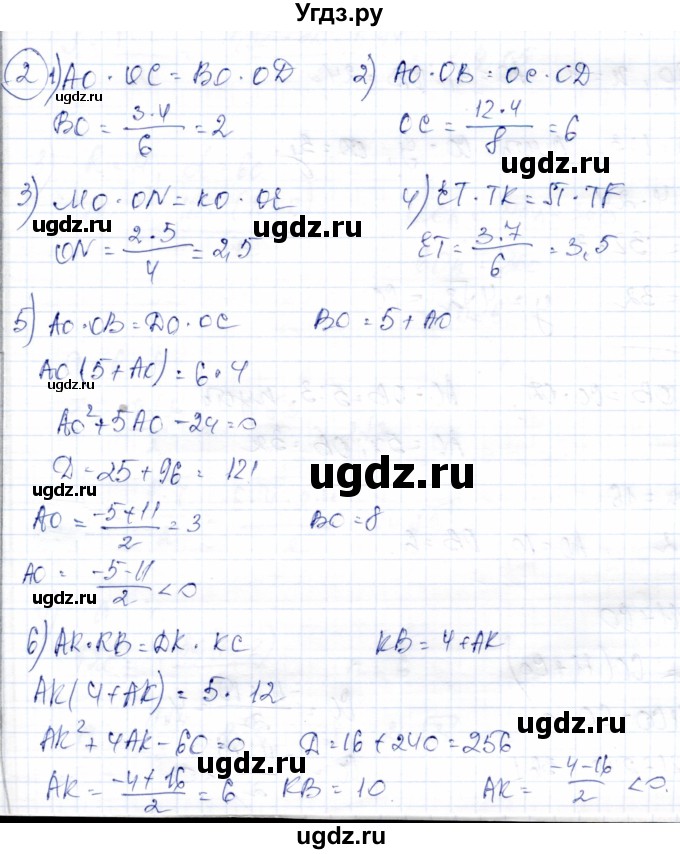 Угдз.ру
② 1) AO · OC = BO · OD 2) AO · OB = OC · OD
BO = 3·4/6 = 2 OC = 12·4/8 = 6
3) MO · ON = KO · OE 4) ET · TK = ST · TF
ON = 2·5/4 = 2,5 ET = 3·7/6 = 3,5
5) AO · OB = DO · OC BO = 5 + AO
AO(5+AO) = 6·4
AO² + 5AO − 24 = 0
D = 25 + 96 = 121
AO = −5+11/2 = 3 BO = 8
AO = −5−11/2 < 0
6) AK · KB = DK · KC KB = 4 + AK
AK(4+AK) = 5·12
AK² + 4AK − 60 = 0 D = 16 + 240 = 256
AK = −4+16/2 = 6 KB = 10. AK = −4−16/2 < 0.
ugdz.ru
ugdz.ru
ugdz.ru
ugdz.ru
ugdz.ru
ugdz.ru
ugdz.ru
ugdz.ru
ugdz.ru
ugdz.ru
ugdz.ru
ugdz.ru
ugdz.ru
ugdz.ru